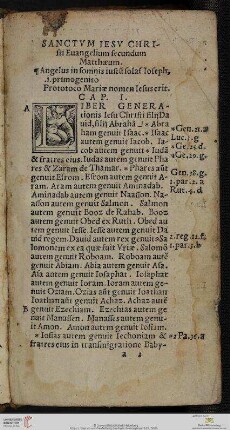 SANCTVM IESV CHRI-
sti Euangelium secundum
Matthæum.
¶Angelus in somnis iussit solas Ioseph,
primogenito
Prototoco Mariæ nomen Iesus erit.
CAP. I.
LIBER GENERA-
tionis Iesu Christi filij Da
uid, filij Abrahã * Abra
ham genuit Isaac. *Isaac
autem genuit Iacob. Ia-
cob autem genuit * Iudã
& fratres eius. Iudas autem genuit Pha
res & Zaram de Thamar. * Phares aut
genuit Esrom. Esrom autem genuit A-
ram. Aram autem genuit Aminadab.
Aminadab autem genuit Naasson. Na-
asson autem genuit Salmon. Salmon
autem genuit Booz de Rahab. Booz
autem genuit Obed ex Ruth. Obed au
tem genuit Iesse. Iesse autem genuit Da
uid regem. Dauid autem rex genuit *Sa
lomonem ex ea quæ fuit Vriæ. Salomõ
autem genuit Roboam. Roboam autẽ
genuit Abiam. Abia autem genuit Asa.
Asa autem genuit Iosaphat. Iosaphat
autem genuit Ioram. Ioram autem ge-
nuit Oziam. Ozias aut genuit Ioatham
Ioatham aut genuit Achaz. Achaz autẽ
genuit Ezechiam. Ezechias autem ge-
nuit Manassen. Manasses autem genu-
it Amon. Amon autem genuit Iosiam.
* Iosias autem genuit Iechoniam &
fratres eius in transmigratione Baby-
a 2
*Gen. 21.a
Luc. 3.g
*Ge. 25.d.
*Ge. 29.g.
*Gen. 38.g.
1.par. 2.a
Rut. 4.d.
1.par. 3.b